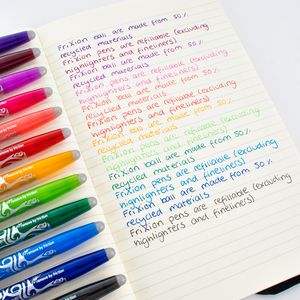 FriXion ball are made from 50%
recycled materials
FriXion pens are refillable (excluding
highlighters and fineliners)
FriXion ball are made from 50%
recycled materials
FriXion pens are refillable (excluding
highlighters and fineliners)
FriXion ball are made from 50%
recycled materials
FriXion pens are refillable (excluding
highlighters and fineliners)
FriXion ball are made from 50%
recycled materials
FriXion pens are refillable (excluding
highlighters and fineliners)
FriXion ball are made from 50%
recycled materials
FriXion pens are refillable (excluding
highlighters and fineliners)
FriXion ball are made from 50%
recycled materials
FriXion pens are refillable (excluding
highlighters and fineliners)
remove by friction
remove by friction
remove by friction
remove by friction